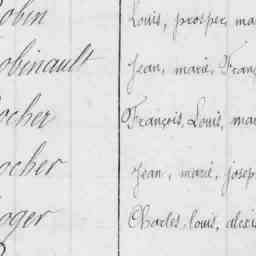 obin Louis, prosper, ma
obinault Jean, marie, Franç
ocher François, Louis, ma
ocher Jean, marie, josep
oger Charles, louis, alexis